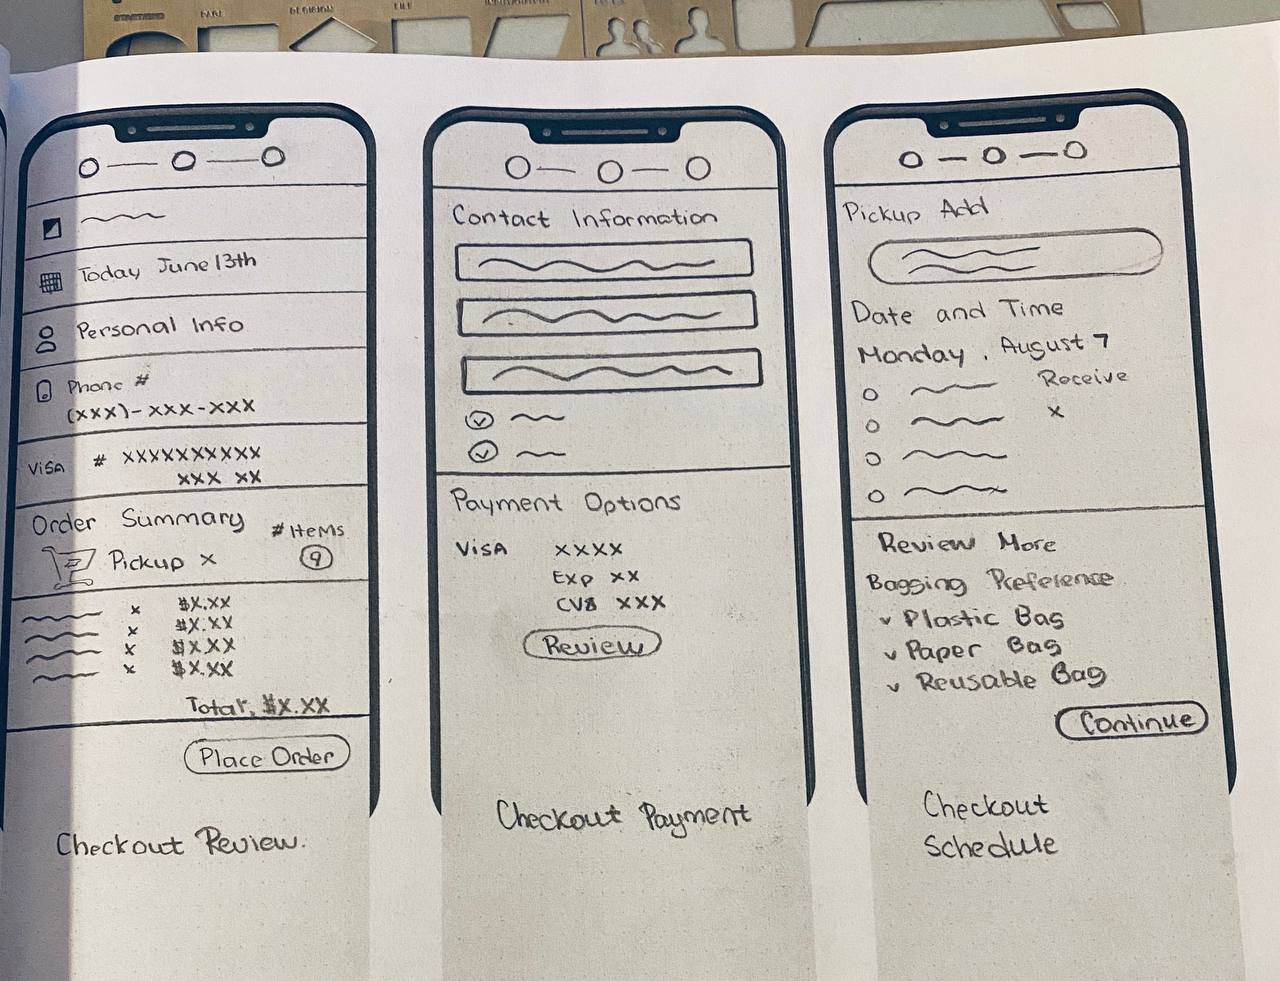 Today June 13th
Personal Info
Phone #
(xxx)-xxx-xxx
VISA # xxxxxxxxxx
xxx xx
Order Summary
# Items
Pickup x
9
x $x.xx
x $x.xx
x $x.xx
x $x.xx
Total, $x.xx
Place Order
Checkout Review.
Contact Information
Payment Options
VISA xxxx
Exp xx
CV8 xxx
Review
Checkout Payment
Pickup Add
Date and Time
Monday, August 7
Receive
x
Review More
Bagging Preference
Plastic Bag
Paper Bag
Reusable Bag
Continue
Checkout
Schedule